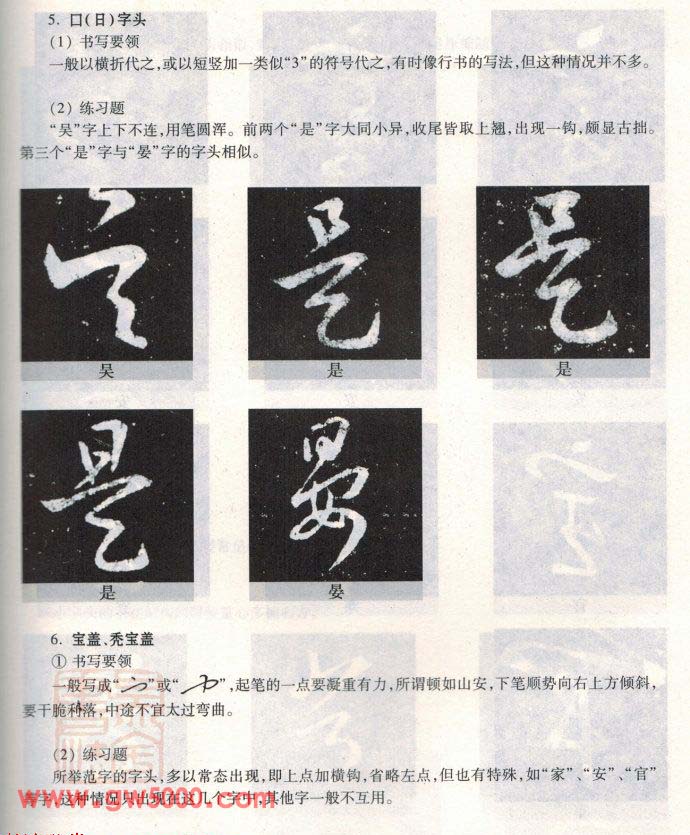 5. 口(日)字头
(1) 书写要领
一般以横折代之,或以短竖加一类似“3”的符号代之,有时像行书的写法,但这种情况并不多。
(2) 练习题
“吴”字上下不连,用笔圆浑。前两个“是”字大同小异,收尾皆取上翘,出现一钩,颇显古拙。
第三个“是”字与“晏”字的字头相似。
吴
是
是
是
晏
6. 宝盖、秃宝盖
① 书写要领
一般写成“”或“”,起笔的一点要凝重有力,所谓顿如山安,下笔顺势向右上方倾斜,
要干脆利落,中途不宜太过弯曲。
(2) 练习题
所举范字的字头,多以常态出现,即上点加横钩,省略左点,但也有特殊,如“家”、“安”、“官”
等字,这种情况只出现在这几个字中,其他字一般不互用。
www.gw5000.com